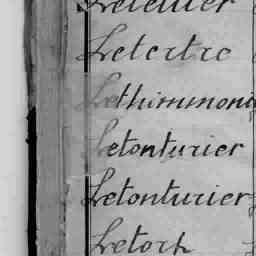 Letellier
Letertre
Lethimmoni
Letonturier
Letonturier
Letort